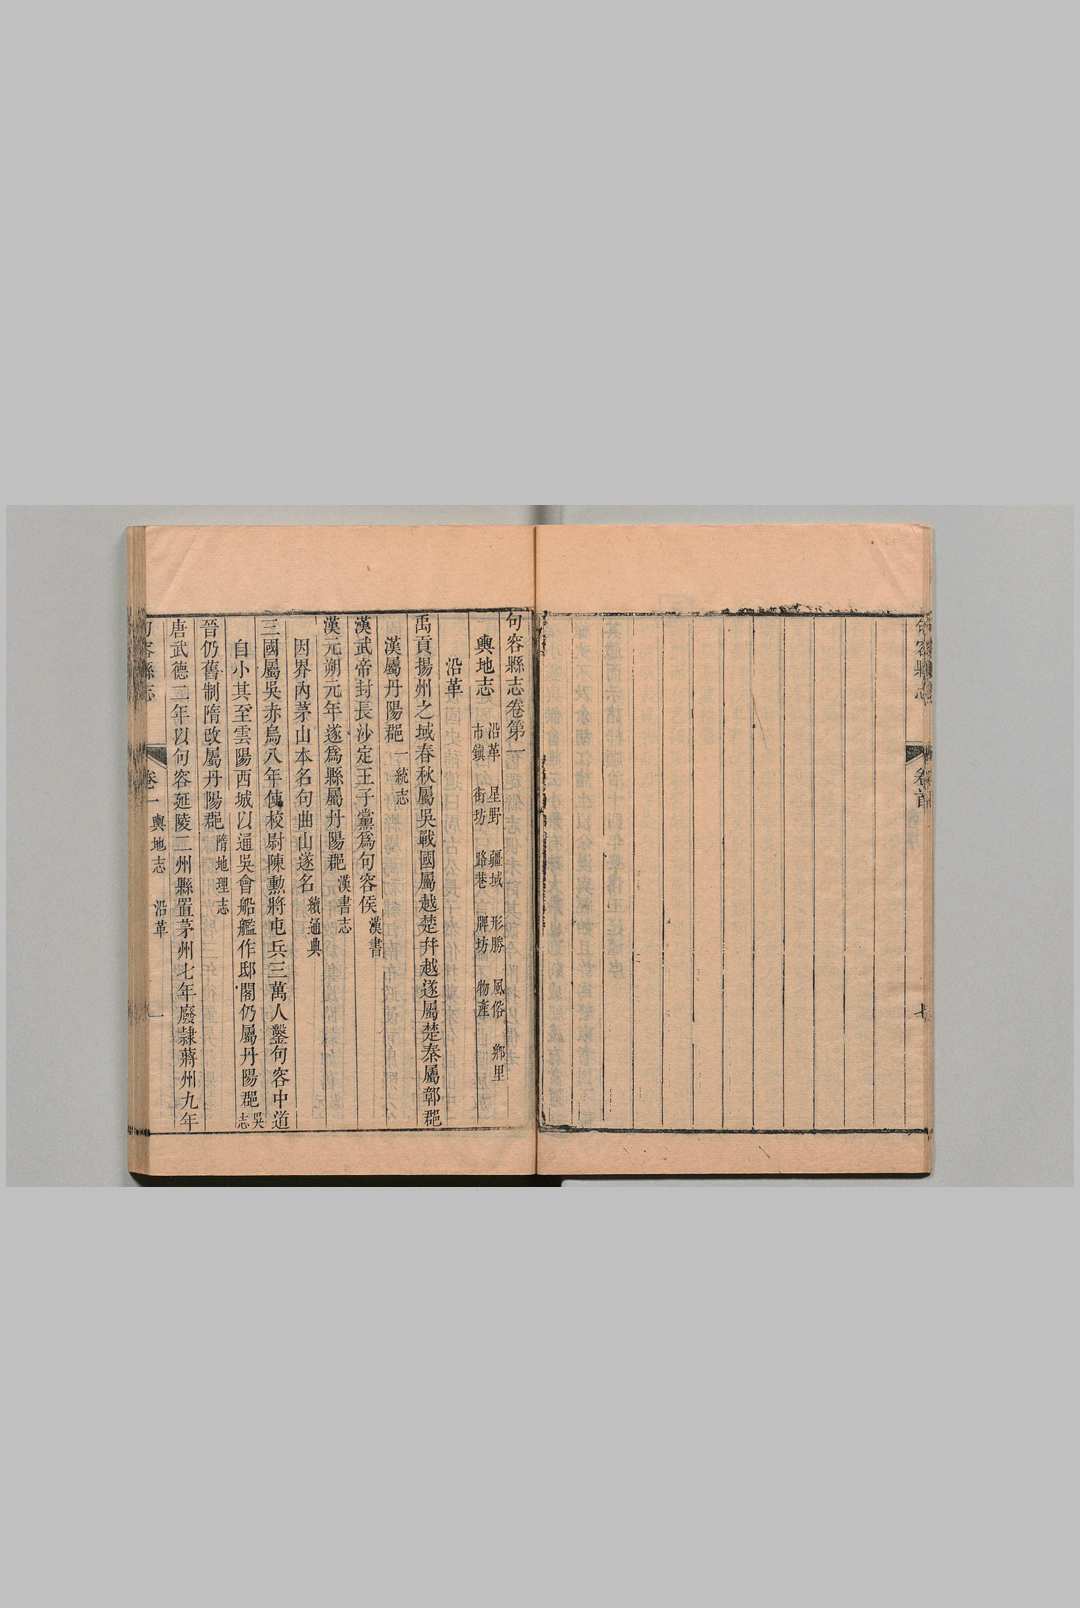 句容縣志
卷首
七
句容縣志卷第一
輿地志 沿革 星野 疆域 形勝 風俗 鄉里
市鎭 街坊 路巷 牌坊 物產
沿革
禹貢揚州之域春秋屬吳戰國屬越楚幷越遂屬楚秦屬鄣郡
漢屬丹陽郡一統志
漢武帝封長沙定王子黨爲句容侯漢書
漢元朔元年遂爲縣屬丹陽郡漢書志
因界內茅山本名句曲山遂名續通典
三國屬吳赤烏八年使校尉陳勳將屯兵三萬人鑿句容中道
自小其至雲陽西城以通吳會船艦作邸閣仍屬丹陽郡吳志
晉仍舊制隋改屬丹陽郡隋地理志
唐武德三年以句容延陵二州縣置茅州七年廢隷蔣州九年
句容縣志
卷一 輿地志 沿革
一